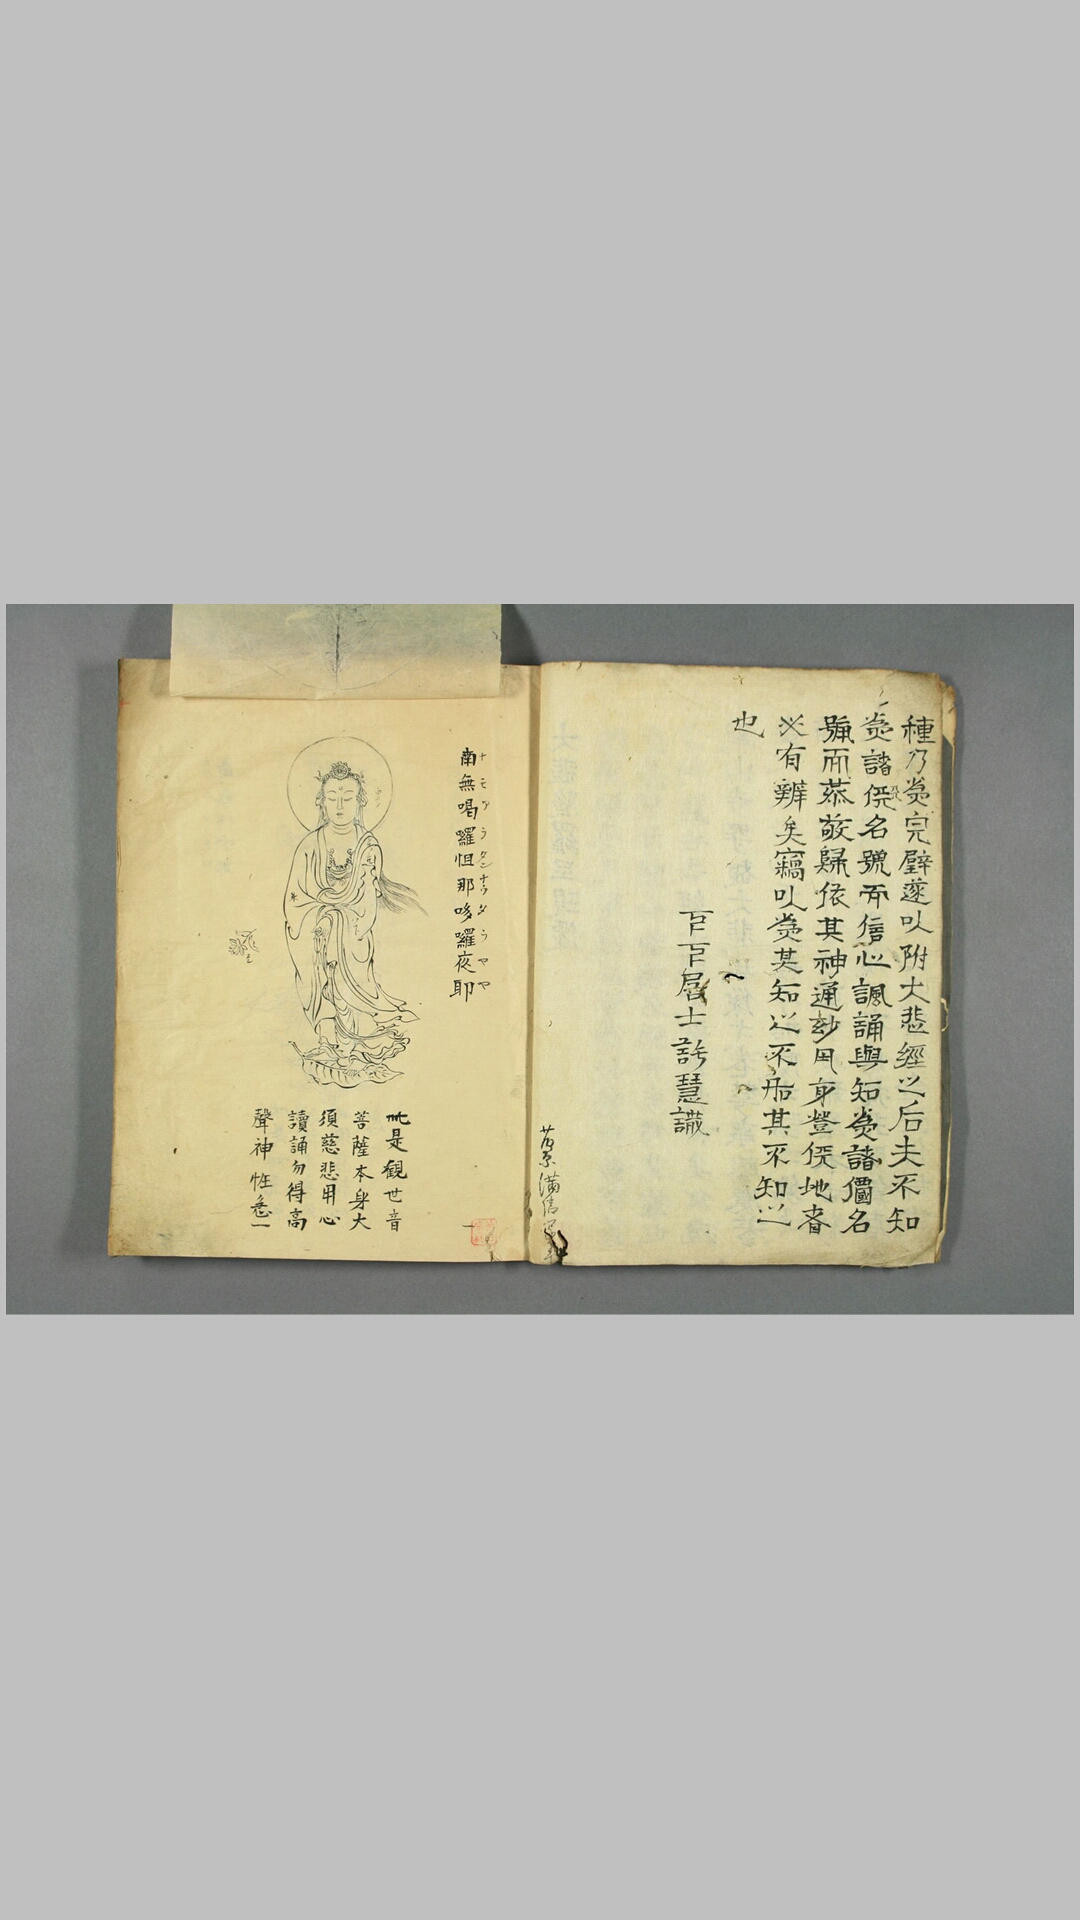 種乃為完璧遂以附大悲經之后夫不知
為諸佛名號而信心諷誦與知為諸僊名
號而恭敬歸依其神通妙用身登佛地者
必有辨矣竊以為其知之不如其不知之
也
居士許慧識
南無喝囉怛那哆囉夜耶
ナモラタンナタラヤヤ
此是觀世音
菩薩本身大
須慈悲用心
讀誦勿得高
聲神性急一